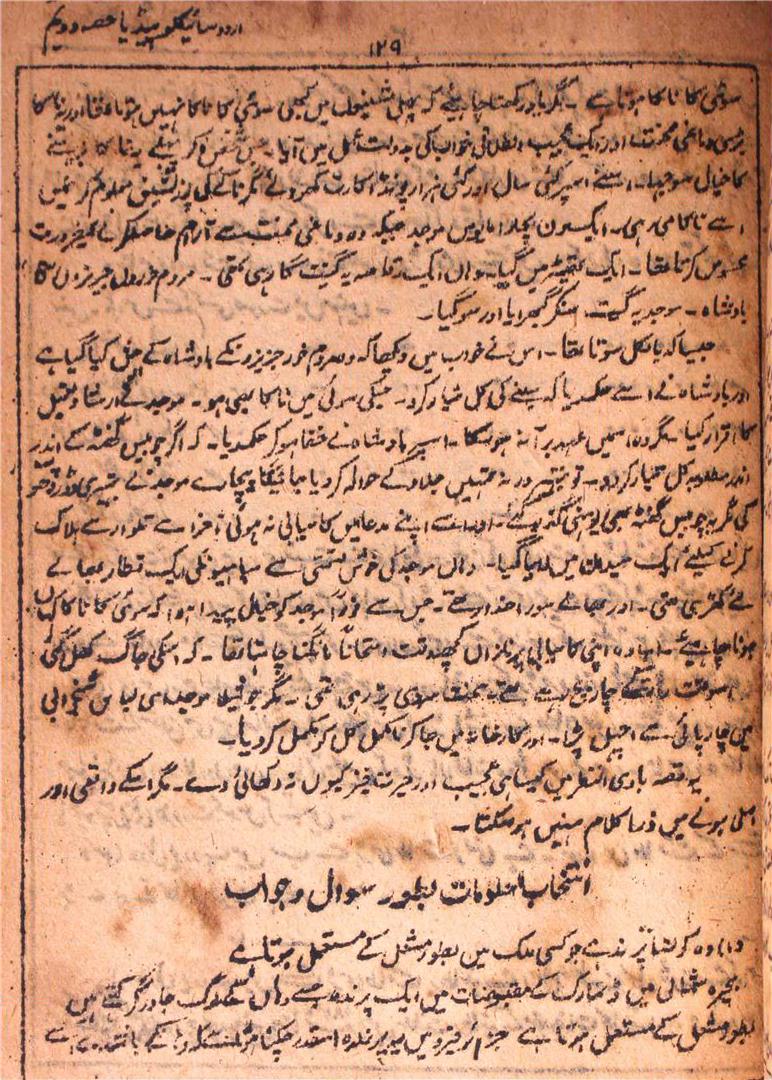 اردو سائیکلو پیڈیا حصہ دویم
۱۲۹
سوئی کا ناکا ہوتا ہے ۔ مگر یاد رکھنا چاہیئے کہ پہلی مشینوں میں کبھی سوئی کا ناکا نہیں ہوتا تھا اور یہ ناکا
بڑی دماغی محنت اور ایک عجیب خواب کی بدولت عمل میں آیا۔ جس شخص کو پہلے یہ ناکا
کا خیال سوجھا۔ اسنے اسپر کئی سال اور کئی ہزار پونڈ اکارت کھو دئے مگر ناکے کی پوزیشن معلوم کرنے میں
اسے ناکامی رہی۔ ایک دن بیچارا موجد جبکہ وہ دماغی محنت سے آرام حاصل کرنے کی ضرورت
محسوس کرتا تھا ۔ ایک تھیٹر میں گیا۔ وہاں ایک رقاصہ یہ گیت گا رہی تھی ۔ مردم خوروں جزیروں کا
بادشاہ ۔ موجد یہ گیت سنکر گھبرایا اور سو گیا۔
جیسا کہ بالکل سوتا تھا ۔ اس نے خواب میں دیکھا کہ وہ مردم خور جزیرونکے بادشاہ کے پیش کیا گیا ہے
اور بادشاہ نے اسے حکم دیا کہ سینے کی کل تیار کرو۔ جسکی سوئی میں ناکا بھی ہو ۔ موجد نے ارشاد کی تعمیل
کا اقرار کیا ۔ مگر وہ اسمیں عہدہ بر آ نہ ہو سکا ۔ اسپر بادشاہ نے خفا ہو کر حکم دیا ۔ کہ اگر چوبیس گھنٹہ کے اندر
اندر مطلوبہ کل تیار کر دو ۔ تو بہتر ورنہ تمہیں جلاد کے حوالہ کر دیا جائیگا بیچارے موجد نے بہتیری
کی مگر یہ چوبیس گھنٹہ بھی یوں ہی گذر گئے ۔ اور اسے اپنے مدعا میں کامیابی نہ ہوئی آخر اسے تلوار سے ہلاک
کرنے کیلئے ایک میدان میں لایا گیا۔ وہاں موجد کی خوش قسمتی سے سپاہیونکی ایک قطار بھالے
لئے کھڑی تھی ۔ اور بھالے سوراخدار تھے ۔ جس سے فوراً موجد کو خیال پیدا ہوا کہ سوئی کا ناکا کہاں
ہونا چاہیئے ۔ وہ اپنی کامیابی پر نازاں کچھ وقت امتحاناً مانگنا چاہتا تھا ۔ کہ اسکی جاگ کھل گئی
اسوقت رات کے چار بجے تھے ۔ سخت سردی پڑ رہی تھی ۔ مگر جوشیلا موجد اسی لباس شبخوابی
میں چارپائی سے اچھل پڑا ۔ اور کارخانہ میں جا کر نامکمل کل کو مکمل کر دیا۔
یہ قصہ بادی النظر میں کیسا ہی عجیب اور حیرت خیز کیوں نہ دکھائی دے ۔ مگر اسکے واقعی اور
اصلی ہونے میں ذرا کلام نہیں ہو سکتا ۔
انتخاب معلومات بطور سوال و جواب
(۱) وہ کونسا پرندہ ہے جو کسی ملک میں بطور مشعل کے مستعمل ہوتا ہے
بحیرہ شمالی میں ڈنمارک کے مقبوضات میں ایک پرندہ ہے وہاں لوگ
بطور مشعل کے مستعمل ہوتا ہے جزائر فیرو میں یہ پرندہ اسقدر چکنا ہوتا ہے کہ وہاں کے باشندے اسے